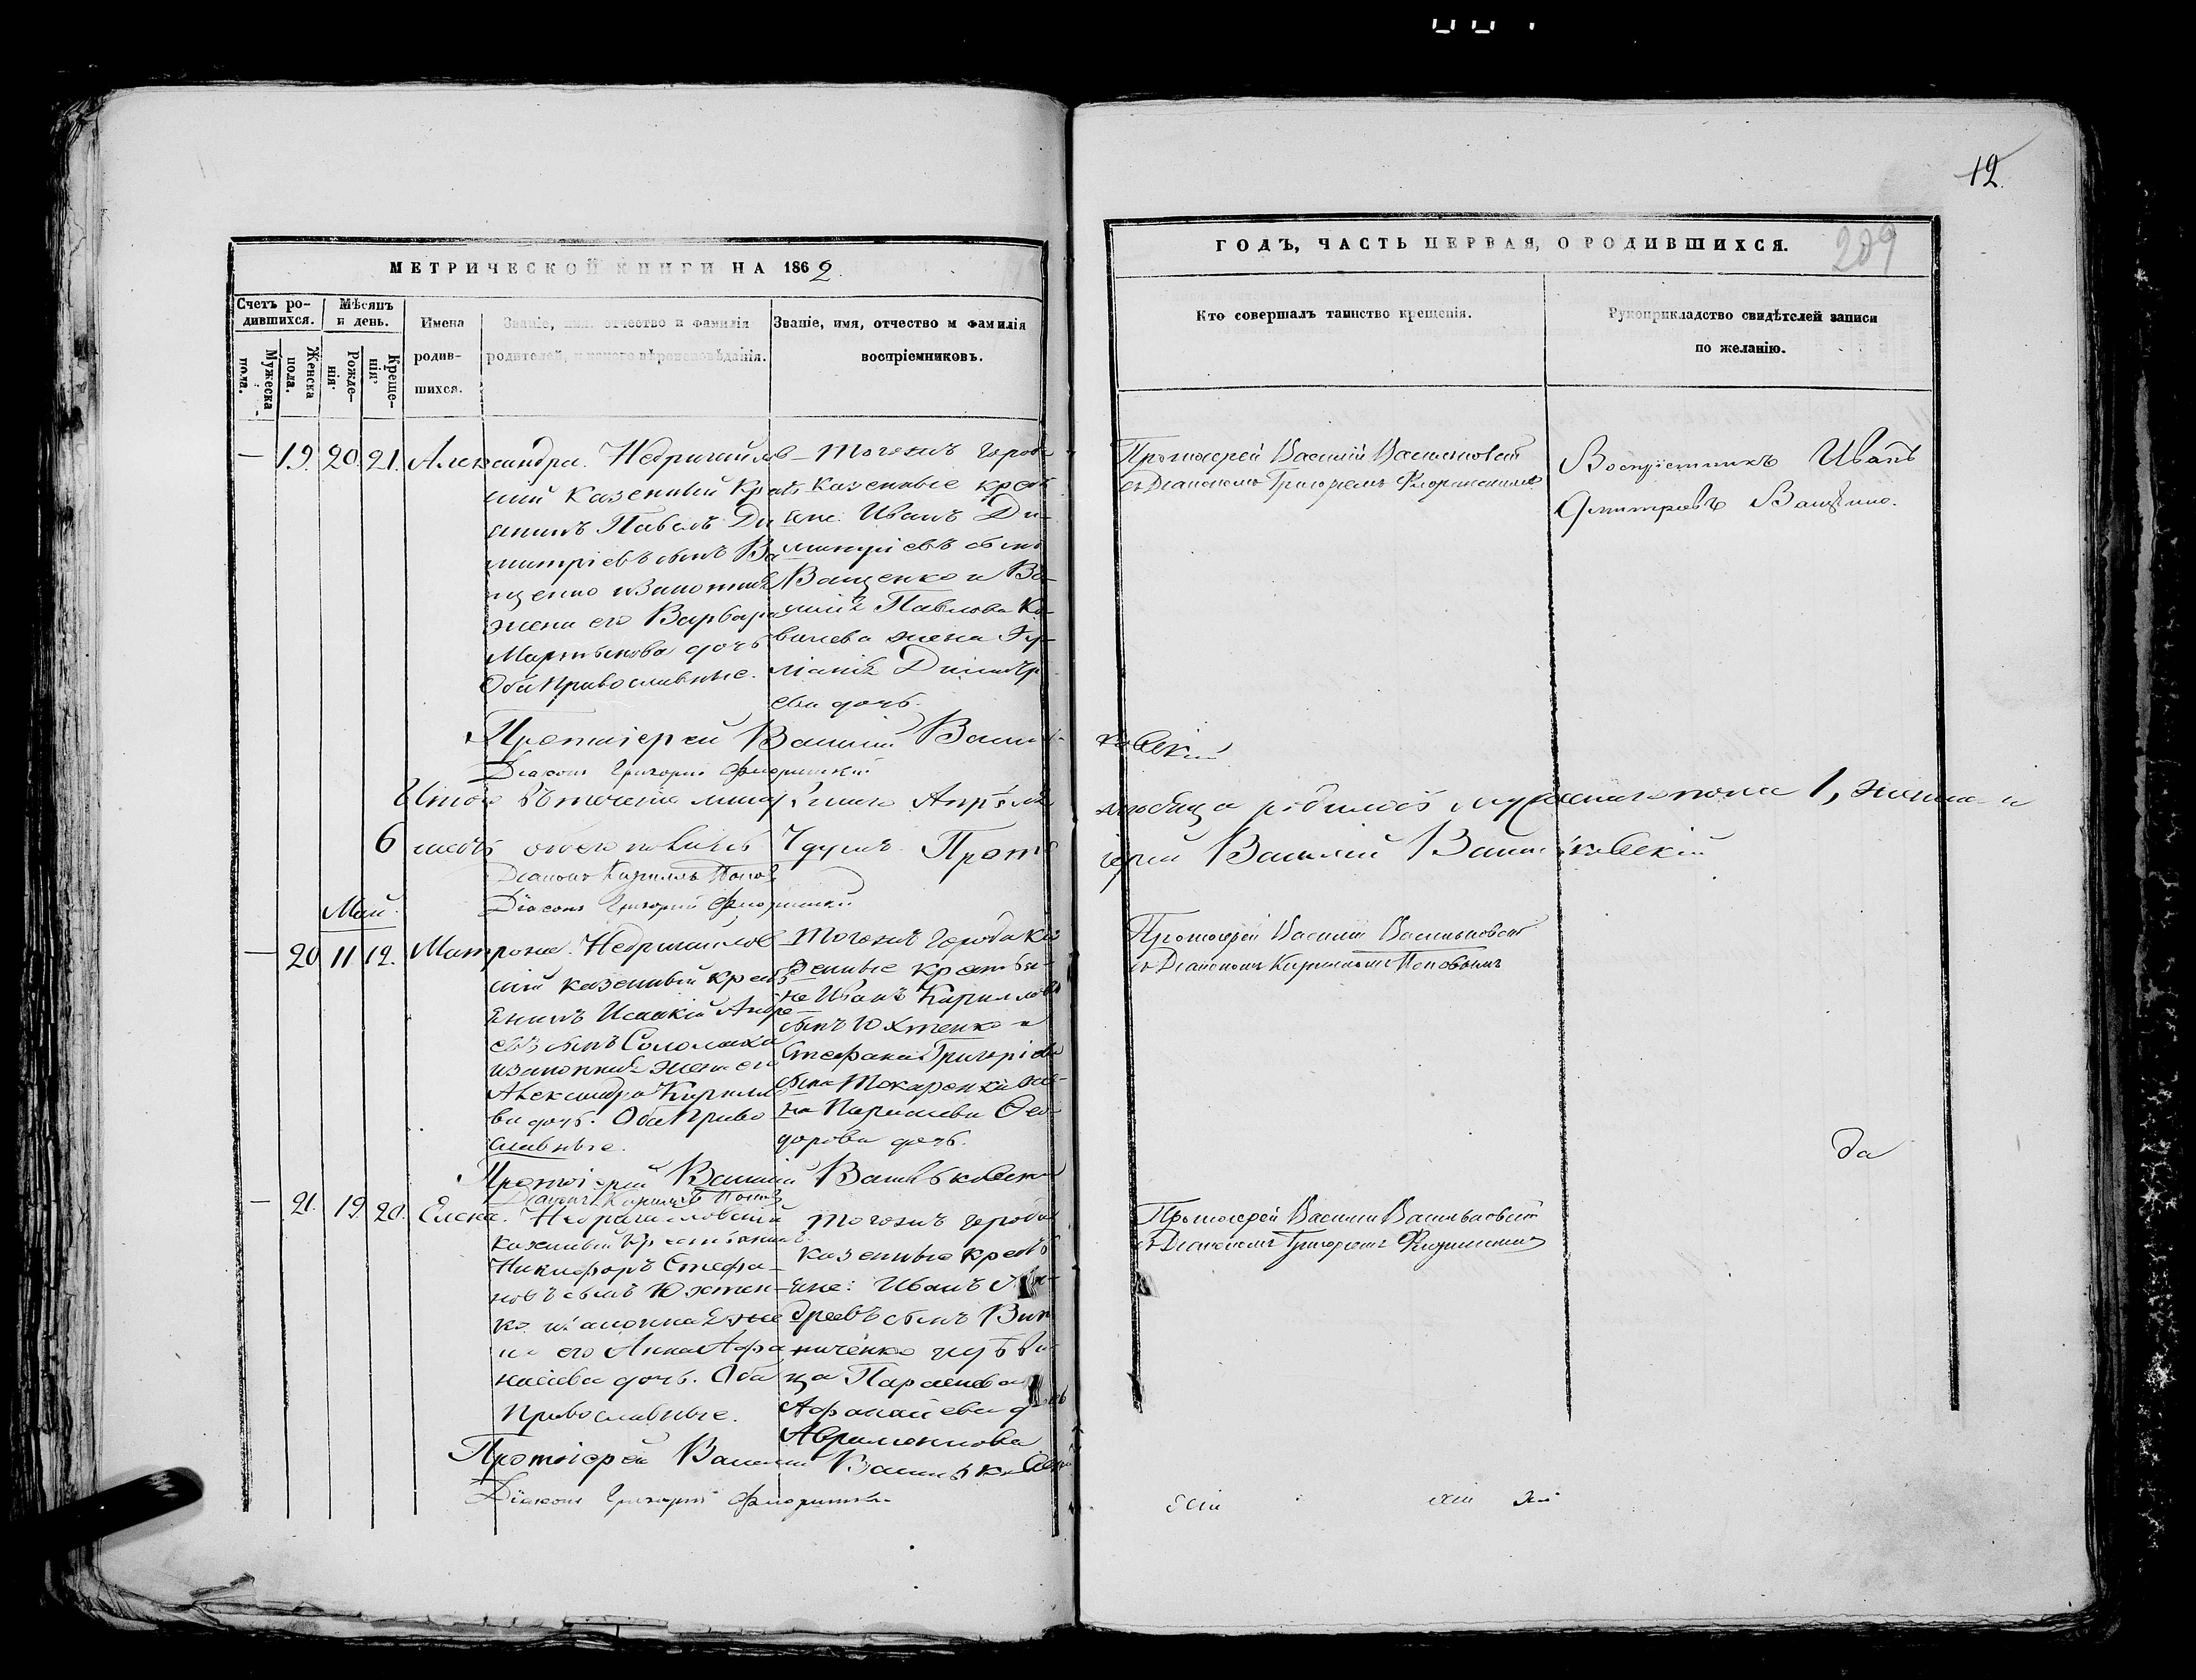 12.
209
МЕТРИЧЕСКОЙ КНИГИ НА 1862
ГОДЪ, ЧАСТЬ ПЕРВАЯ, О РОДИВШИХСЯ.
Счетъ ро-
дившихся.
Мужеска
пола.
Женска
пола.
Мѣсяцъ
и день.
Рожде-
нія.
Креще-
нія.
Имена
родив-
шихся.
Званіе, имя, отчество и фамилія
родителей, и какого вѣроисповѣданія.
Званіе, имя, отчество и фамилія
воспріемниковъ.
Кто совершалъ таинство крещенія.
Рукоприкладство свидѣтелей записи
по желанію.
— 19. 20. 21. Александра.
Недригайлов
скій казенный крест
янинъ Павелъ Ди
митріевъ сынъ Ва
щенко и законная
жена его Варвара
Мартынова дочь
Оба православные.
Тогожъ города
казенные крест
яне: Иванъ Ди-
митріевъ сынъ
Ващенко и
Павлова Ко-
валева жена Іу-
ліанія Димитр
ева дочь.
Протоіерей Василій Васильковскій
съ Діакономъ Григоріемъ
Воспріемникъ Иванъ
Дмитріевъ Ващенко.
Протоіерей Василій Васильковскій
Діаконъ Григорій
Итого въ теченіе Апрѣля
мѣсяца родилось мужеска пола 1, женска
6 обоего пола 7 душъ. Протоіерей Василій Васильковскій
Діаконъ Кириллъ Поповъ
Діаконъ Григорій
Май.
— 20 11 12. Матрона.
Недригайлов
скій казенный крест
янинъ Исаакій Андре
евъ сынъ Соломаха
и законная жена его
Александра Кирилло
ва дочь. Оба право
славные.
Тогожъ города ка
зенные крестья-
не Иванъ Кирилловъ
сынъ Юхтенко и
Стефана Григоріева
сына Токаренка же-
на Параскева Фео-
дорова дочь.
Протоіерей Василій Васильковскій
съ Діакономъ Кирилломъ Поповымъ
да
Протоіерей Василій Васильковскій
Діаконъ Кириллъ Поповъ
— 21. 19. 20. Елена.
Недригайловскій
казенный крестьянинъ
Никифоръ Стефа-
новъ сынъ Юхтен-
ко и законная же
на его Анна Афа
насіева дочь. Оба
православные.
Тогожъ города
казенные крест
яне: Иванъ Ан-
дреевъ сынъ Вин
ниченко и дѣви
ца Параскева
Афанасіева дочь
Авраменкова
Протоіерей Василій Васильковскій
съ Діакономъ Григоріемъ
Протоіерей Василій Васильковскій
Діаконъ Григорій